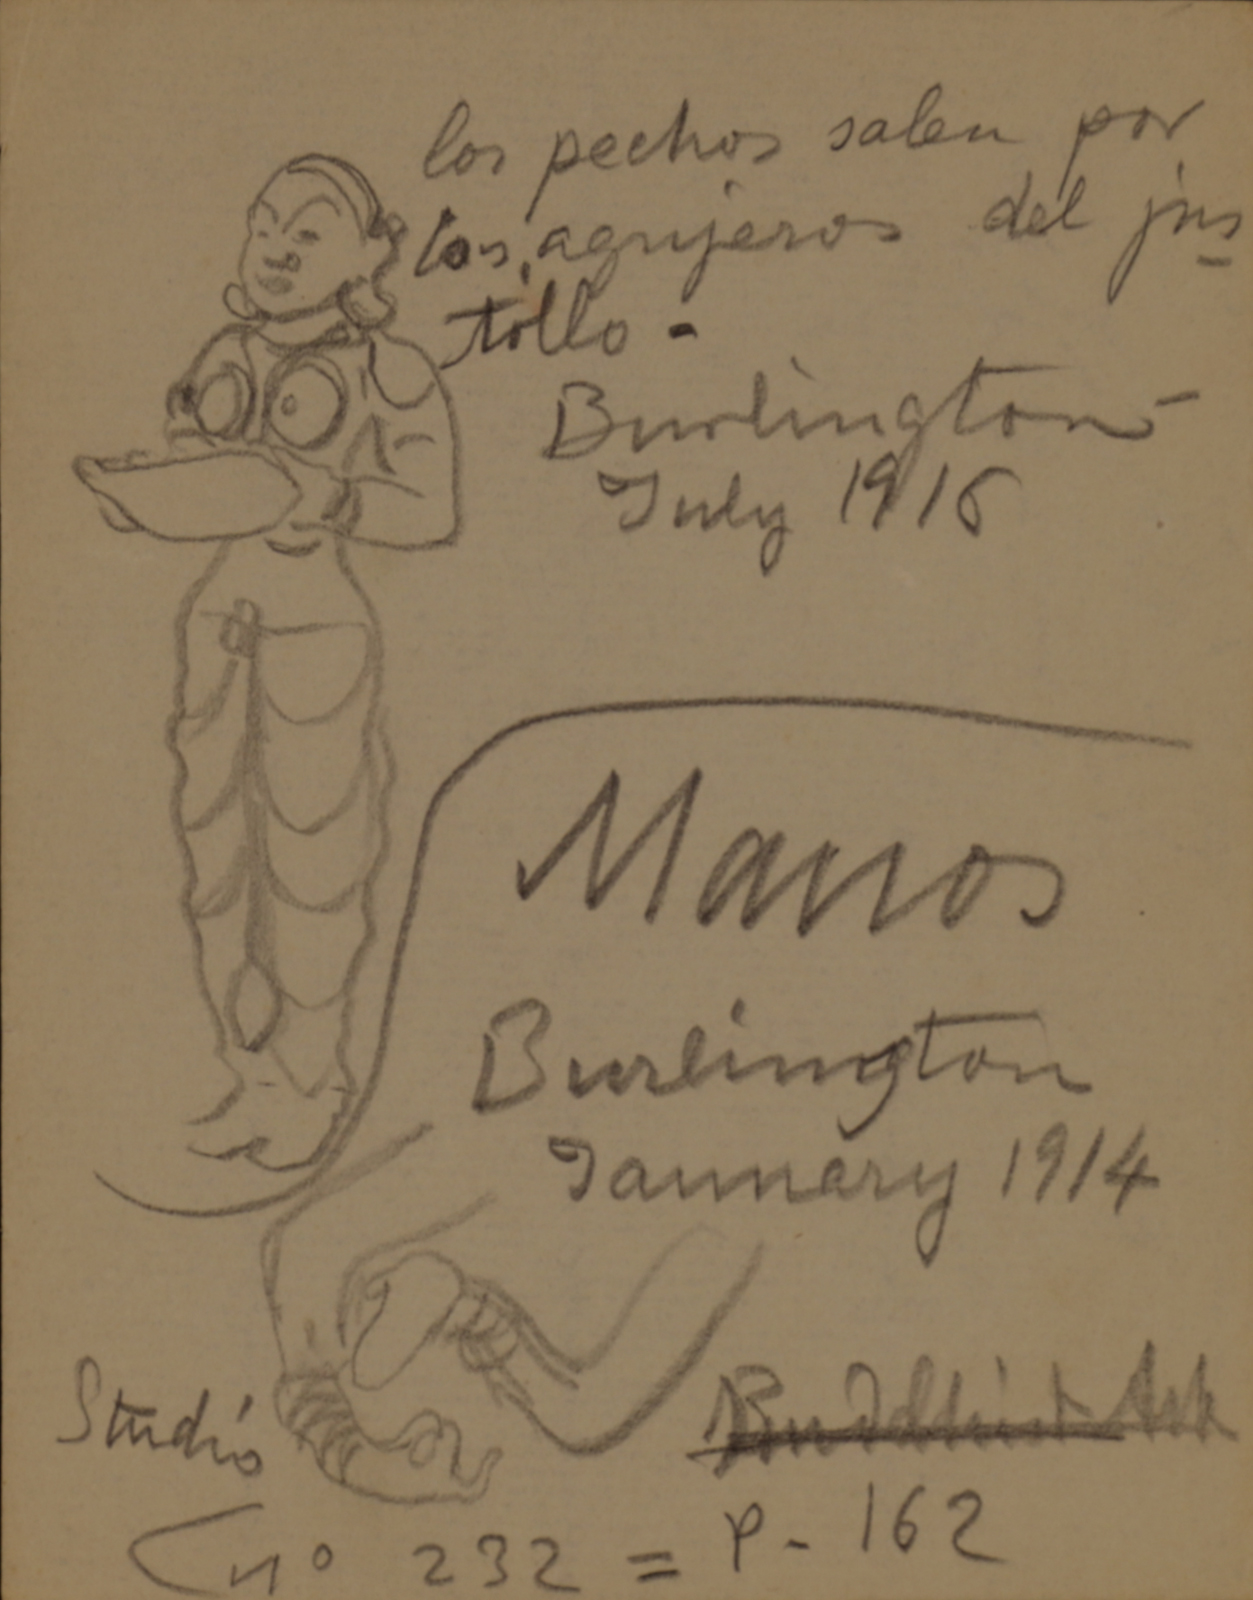 los pechos salen por
los agujeros del jus
tillo -
Burlington -
July 1916
Manos
Burlington
January 1914
Studio
Buddhist Art
nº 232 = p. 162